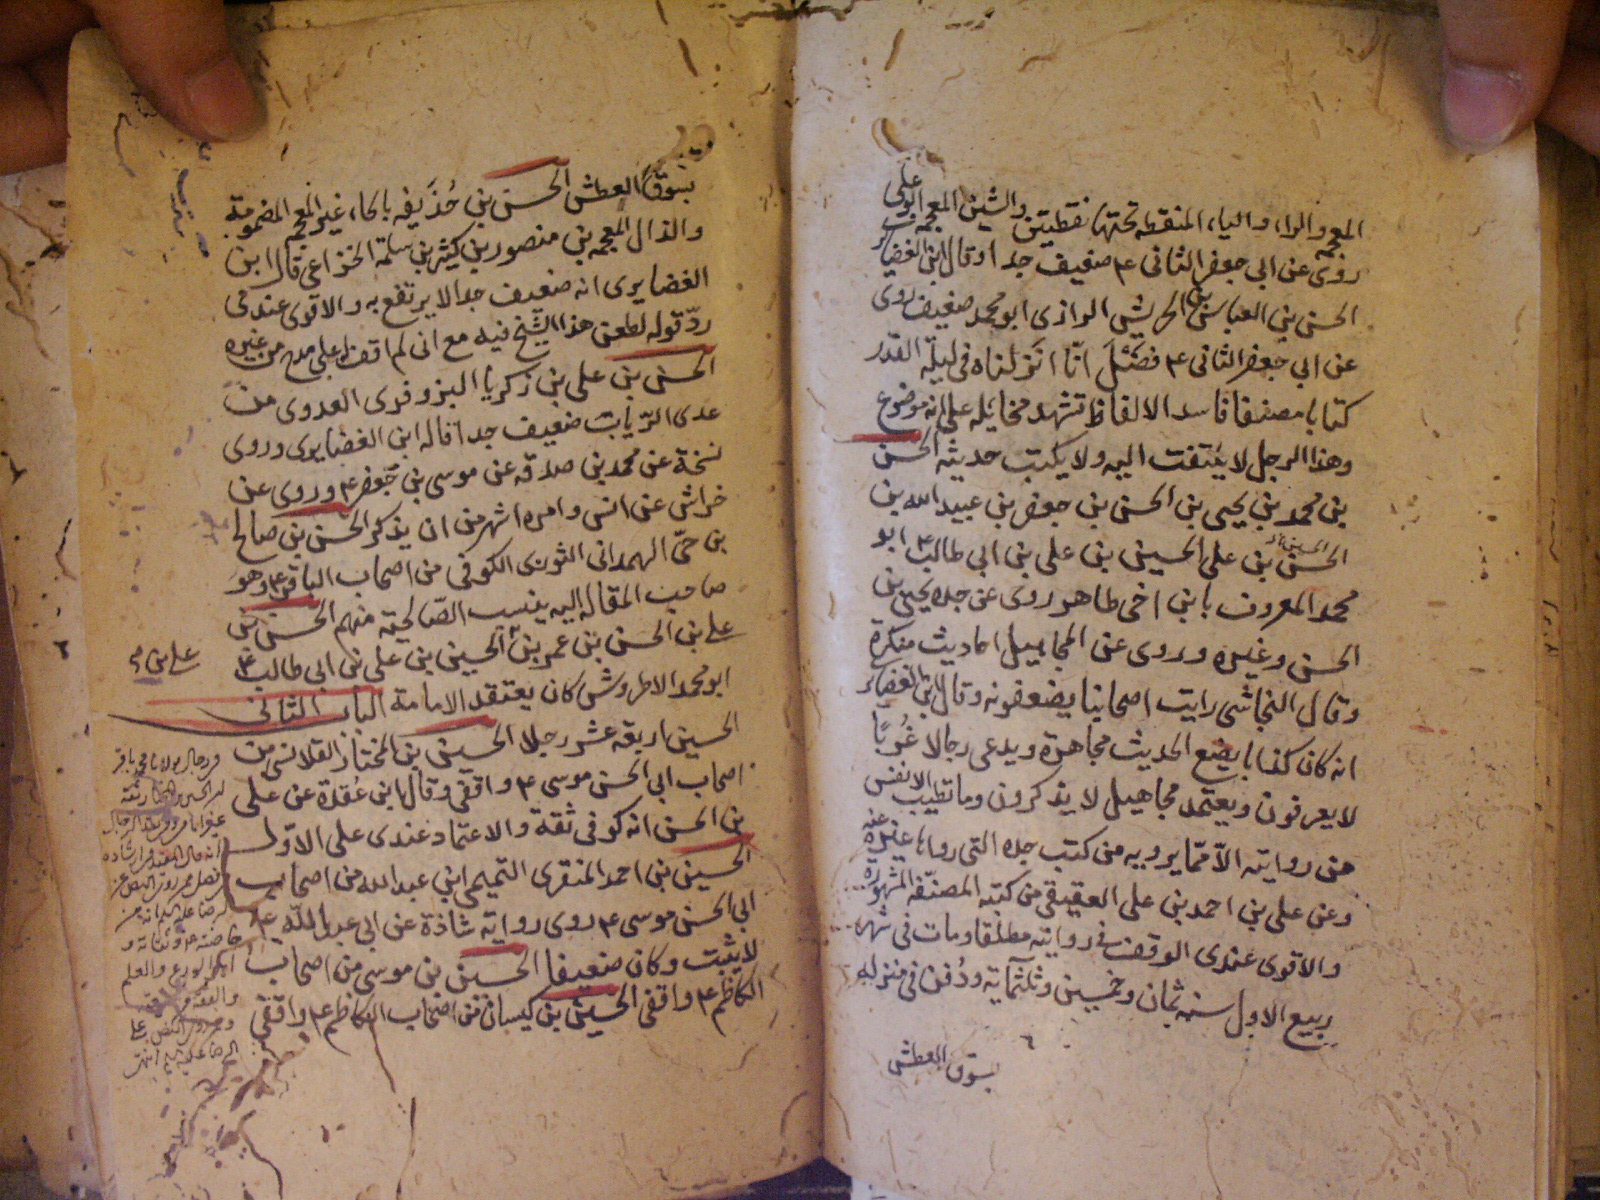 المعجمه والراء والياء المنقطه تحتها نقطتين والشين المعجمه ابو على
روى عن ابي جعفر الثانى ۴ ضعيف جدا وقال ابن الغضاير
الحسن بن العباس بن الحريش الرازى ابو محمد ضعيف روى
عن ابي جعفر الثانى ۴ فضل انا انزلناه فى ليلة القدر
كتابا مصنفا فاسد الالفاظ تشهد مخايله على انه موضوع
وهذا الرجل لا يلتفت اليه ولا يكتب حديثه الحسن
بن محمد بن يحيى بن الحسن بن جعفر بن عبيد الله بن
الحسين بن على الحسين بن على بن ابى طالب ۴ ابو
محمد المعروف بابن اخى طاهر روى عن جده يحيى بن
الحسن وغيره وروى عن المجاهيل احاديث منكرة
وقال النجاشى رايت اصحابنا يضعفونه وقال ابن الغضاير
انه كان كذابا يضع الحديث مجاهرة ويدعى رجالا غربا
لا يعرفون ويعتمد مجاهيل لا يذكرون وما تطيب الانفس
من روايته الا مما يرويه من كتب جده التى رواها عنه غيره
وعن على بن احمد بن على العقيقى من كتبه المصنفه المشهورة
والاقوى عندى الوقف فى روايته مطلقا ومات فى شهر
ربيع الاول سنه ثمان وخمسين وثلثمآية ودفن فى منزله
بسوق العطش
بسوق العطش الحسن بن حذيفه بالحاء غير المعجم المضمومة
والذال المعجمه بن منصور بن كثير بن سلمة الخزاعى قال ابن
الغضايرى انه ضعيف جدا لا يرتفع به والاقوى عندى
رد قوله لطعن هذا الشيخ فيه مع انى لم اقف على مدح من غيره
الحسن بن على بن زكريا البزوفرى العدوى من
عدى الرباب ضعيف جدا قاله ابن الغضايرى وروى
نسخة عن محمد بن صدقه عن موسى بن جعفر ۴ وروى عن
خراش عن انس وامره اشهر من ان يذكر الحسن بن صالح
بن حى الهمدانى الثورى الكوفى من اصحاب الباقر ۴ وهو
صاحب المقاله اليه ينسب الصالحيه منهم الحسن بن
على بن الحسن بن عمر بن على بن الحسين بن على بن ابى طالب ۴
ابو محمد الاطروش كان يعتقد الامامة الباب الثانى
الحسين اربعه عشر رجلا الحسين بن المختار القلانسى من
اصحاب ابي الحسن موسى ۴ واقفى وقال ابن عقدة عن على
بن الحسن انه كوفى ثقة والاعتماد عندى على الاول
الحسين بن احمد المنقرى التميمى ابى عبد الله من اصحاب
ابي الحسن موسى ۴ روى رواية شاذة عن ابي عبد الله ۴
لا يثبت وكان ضعيفا الحسين بن موسى من اصحاب
الكاظم ۴ واقفى الحسين بن كيسان من اصحاب الكاظم ۴ واقفى